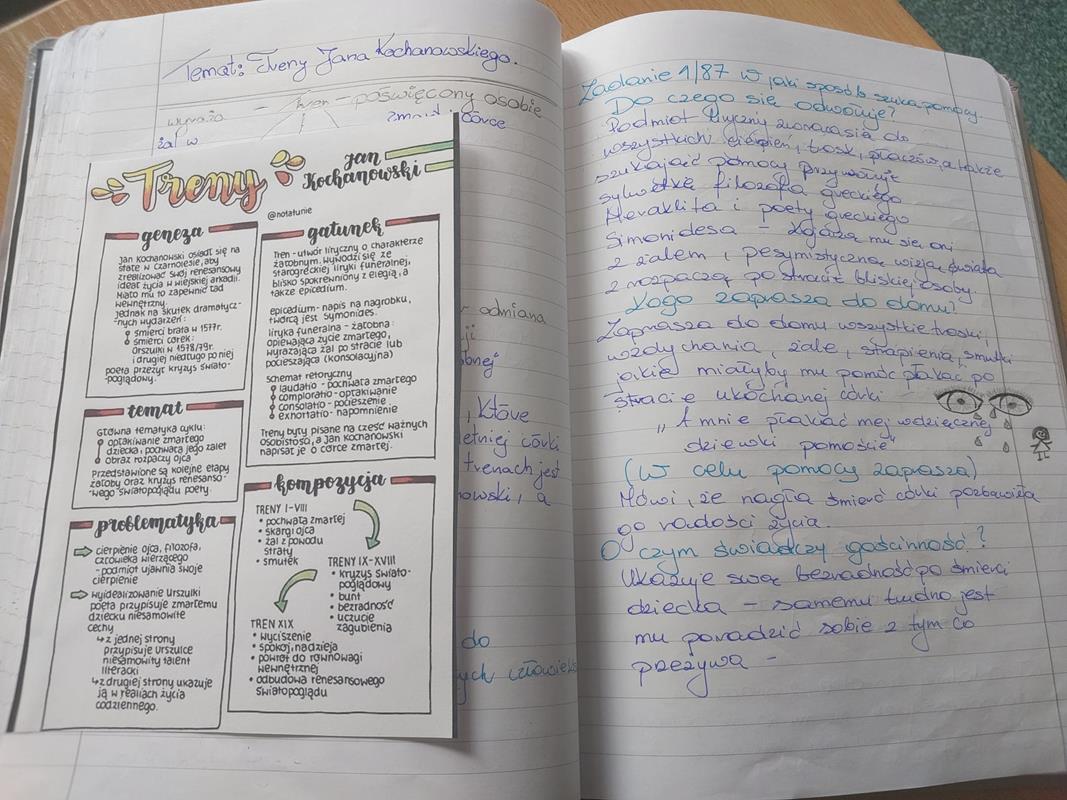 Temat: Treny Jana Kochanowskiego.
wyraża - Tren - poświęcony osobie
żal w
Treny
Jan
Kochanowski
@notatunie
geneza
Jan Kochanowski osiadł się na
stałe w Czarnolesie, aby
zrealizować swój renesansowy
ideał życia w wiejskiej arkadii.
Miało mu to zapewnić ład
wewnętrzny.
Jednak na skutek dramatycz-
-nych wydarzeń:
śmierci brata w 1577r.
śmierci córek:
Urszulki w 1578/79r.
i drugiej niedługo po niej
poeta przeżył kryzys świato-
-poglądowy.
temat
Główna tematyka cyklu:
opłakiwanie zmarłego
dziecka, pochwała jego zalet
obraz rozpaczy ojca
Przedstawione są kolejne etapy
żałoby oraz kryzys renesanso-
-wego światopoglądu poety.
problematyka
cierpienie ojca, filozofa,
człowieka wierzącego
-podmiot ujawnia swoje
cierpienie
wyidealizowanie Urszulki
poeta przypisuje zmarłemu
dziecku niesamowite
cechy
z jednej strony
przypisuje Urszulce
niesamowity talent
literacki
z drugiej strony ukazuje
ją w realiach życia
codziennego.
gatunek
Tren - utwór liryczny o charakterze
żałobnym. Wywodzi się ze
starogreckiej liryki funeralnej,
blisko spokrewniony z elegią, a
także epicedium.
epicedium - napis na nagrobku,
twórcą jest Symonides.
liryka funeralna - żałobna:
opiewająca życie zmarłego,
wyrażająca żal po stracie lub
pocieszająca (konsolacyjna)
Schemat retoryczny
laudatio - pochwała zmarłego
comploratio - opłakiwanie
consolatio - pocieszenie
exhortatio - napomnienie
Treny były pisane na cześć ważnych
osobistości, a Jan Kochanowski
napisał je o córce zmarłej.
kompozycja
TRENY I-VIII
• pochwała zmarłej
• skargi ojca
• żal z powodu
straty
• smutek
TRENY IX-XVIII
• kryzys świato-
poglądowy
• bunt
• bezradność
• uczucie
zagubienia
TREN XIX
• wyciszenie
• spokój, nadzieja
• powrót do równowagi
wewnętrznej
• odbudowa renesansowego
światopoglądu
odmiana
które
letniej córki
trenach jest
nowski, a
do
ych człowiek
Zadanie 1/87 W jaki sposób szuka pomocy.
Do czego się odwołuje?
Podmiot liryczny zwraca się do
wszystkich cierpień, trosk, płaczów, a także
szukając pomocy przywołuje
sylwetkę filozofa greckiego
Heraklita i poety greckiego
Simonidesa - kojarzą mu się oni
z żalem, pesymistyczną wizją świata
z rozpaczą po stracie bliskiej osoby.
Kogo zaprasza do domu?
Zaprasza do domu wszystkie troski,
wzdychania, żale, strapienia, smutki
jakie miałyby mu pomóc płakać po
stracie ukochanej córki -
„A mnie płakać mej wdzięcznej
dziewki pomożcie"
(W celu pomocy zaprasza)
Mówi, że nagła śmierć córki pozbawiła
go radości życia.
O czym świadczy gościnność?
Ukazuje swą bezradność po śmierci
dziecka - samemu trudno jest
mu poradzić sobie z tym co
przeżywa -